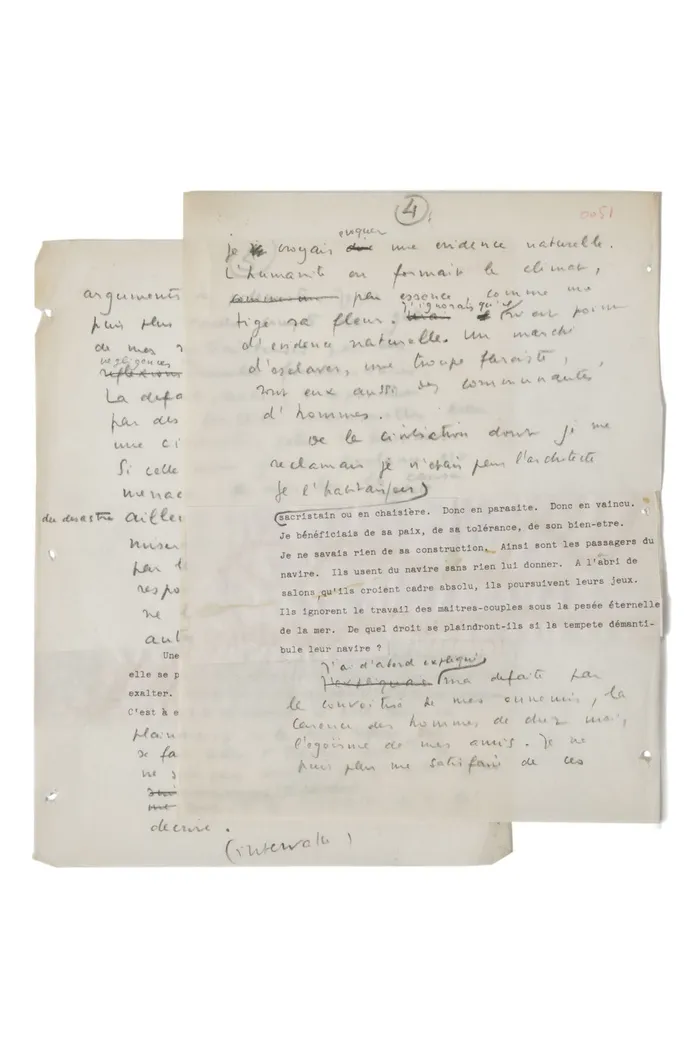 4
0051
évoquer
je croyais une évidence naturelle.
L'humanité en formait le climat,
par essence comme une
j'ignorais qu'il
tige sa fleur. est point
d'évidence naturelle. Un marché
d'esclaves, une troupe fasciste,
sont eux aussi des communautés
d'hommes.
De la civilisation dont je me
réclamais je n'étais pas l'architecte
Je l'habitais en
sacristain ou en chaisière. Donc en parasite. Donc en vaincu.
Je bénéficiais de sa paix, de sa tolérance, de son bien-etre.
Je ne savais rien de sa construction. Ainsi sont les passagers du
navire. Ils usent du navire sans rien lui donner. A l'abri de
salons qu'ils croient cadre absolu, ils poursuivent leurs jeux.
Ils ignorent le travail des maitres-couples sous la pesée éternelle
de la mer. De quel droit se plaindront-ils si la tempete démanti-
bule leur navire ?
J'ai d'abord expliqué
J'expliquais ma défaite par
la convoitise de mes ennemis, la
carence des hommes de chez moi,
l'égoïsme de mes amis. Je ne
puis plus me satisfaire de ces
arguments
puis plus
de mes
négligences
réflexions
La défa
par des
une ci
Si celle
menac
du désastre ailleu
miser
par l
respo
ne
aut
Une
elle se p
exalter.
C'est à e
plain
se fa
ne s
me
décrire.
(intervalle)